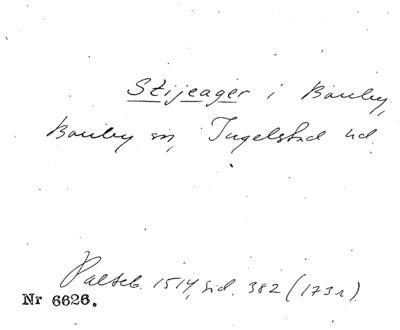 Stijeager i Bouley,
Bouley sn, Ingelstad hd.
Palteb. 1514, sid. 382 (173r)
Nr 6626.